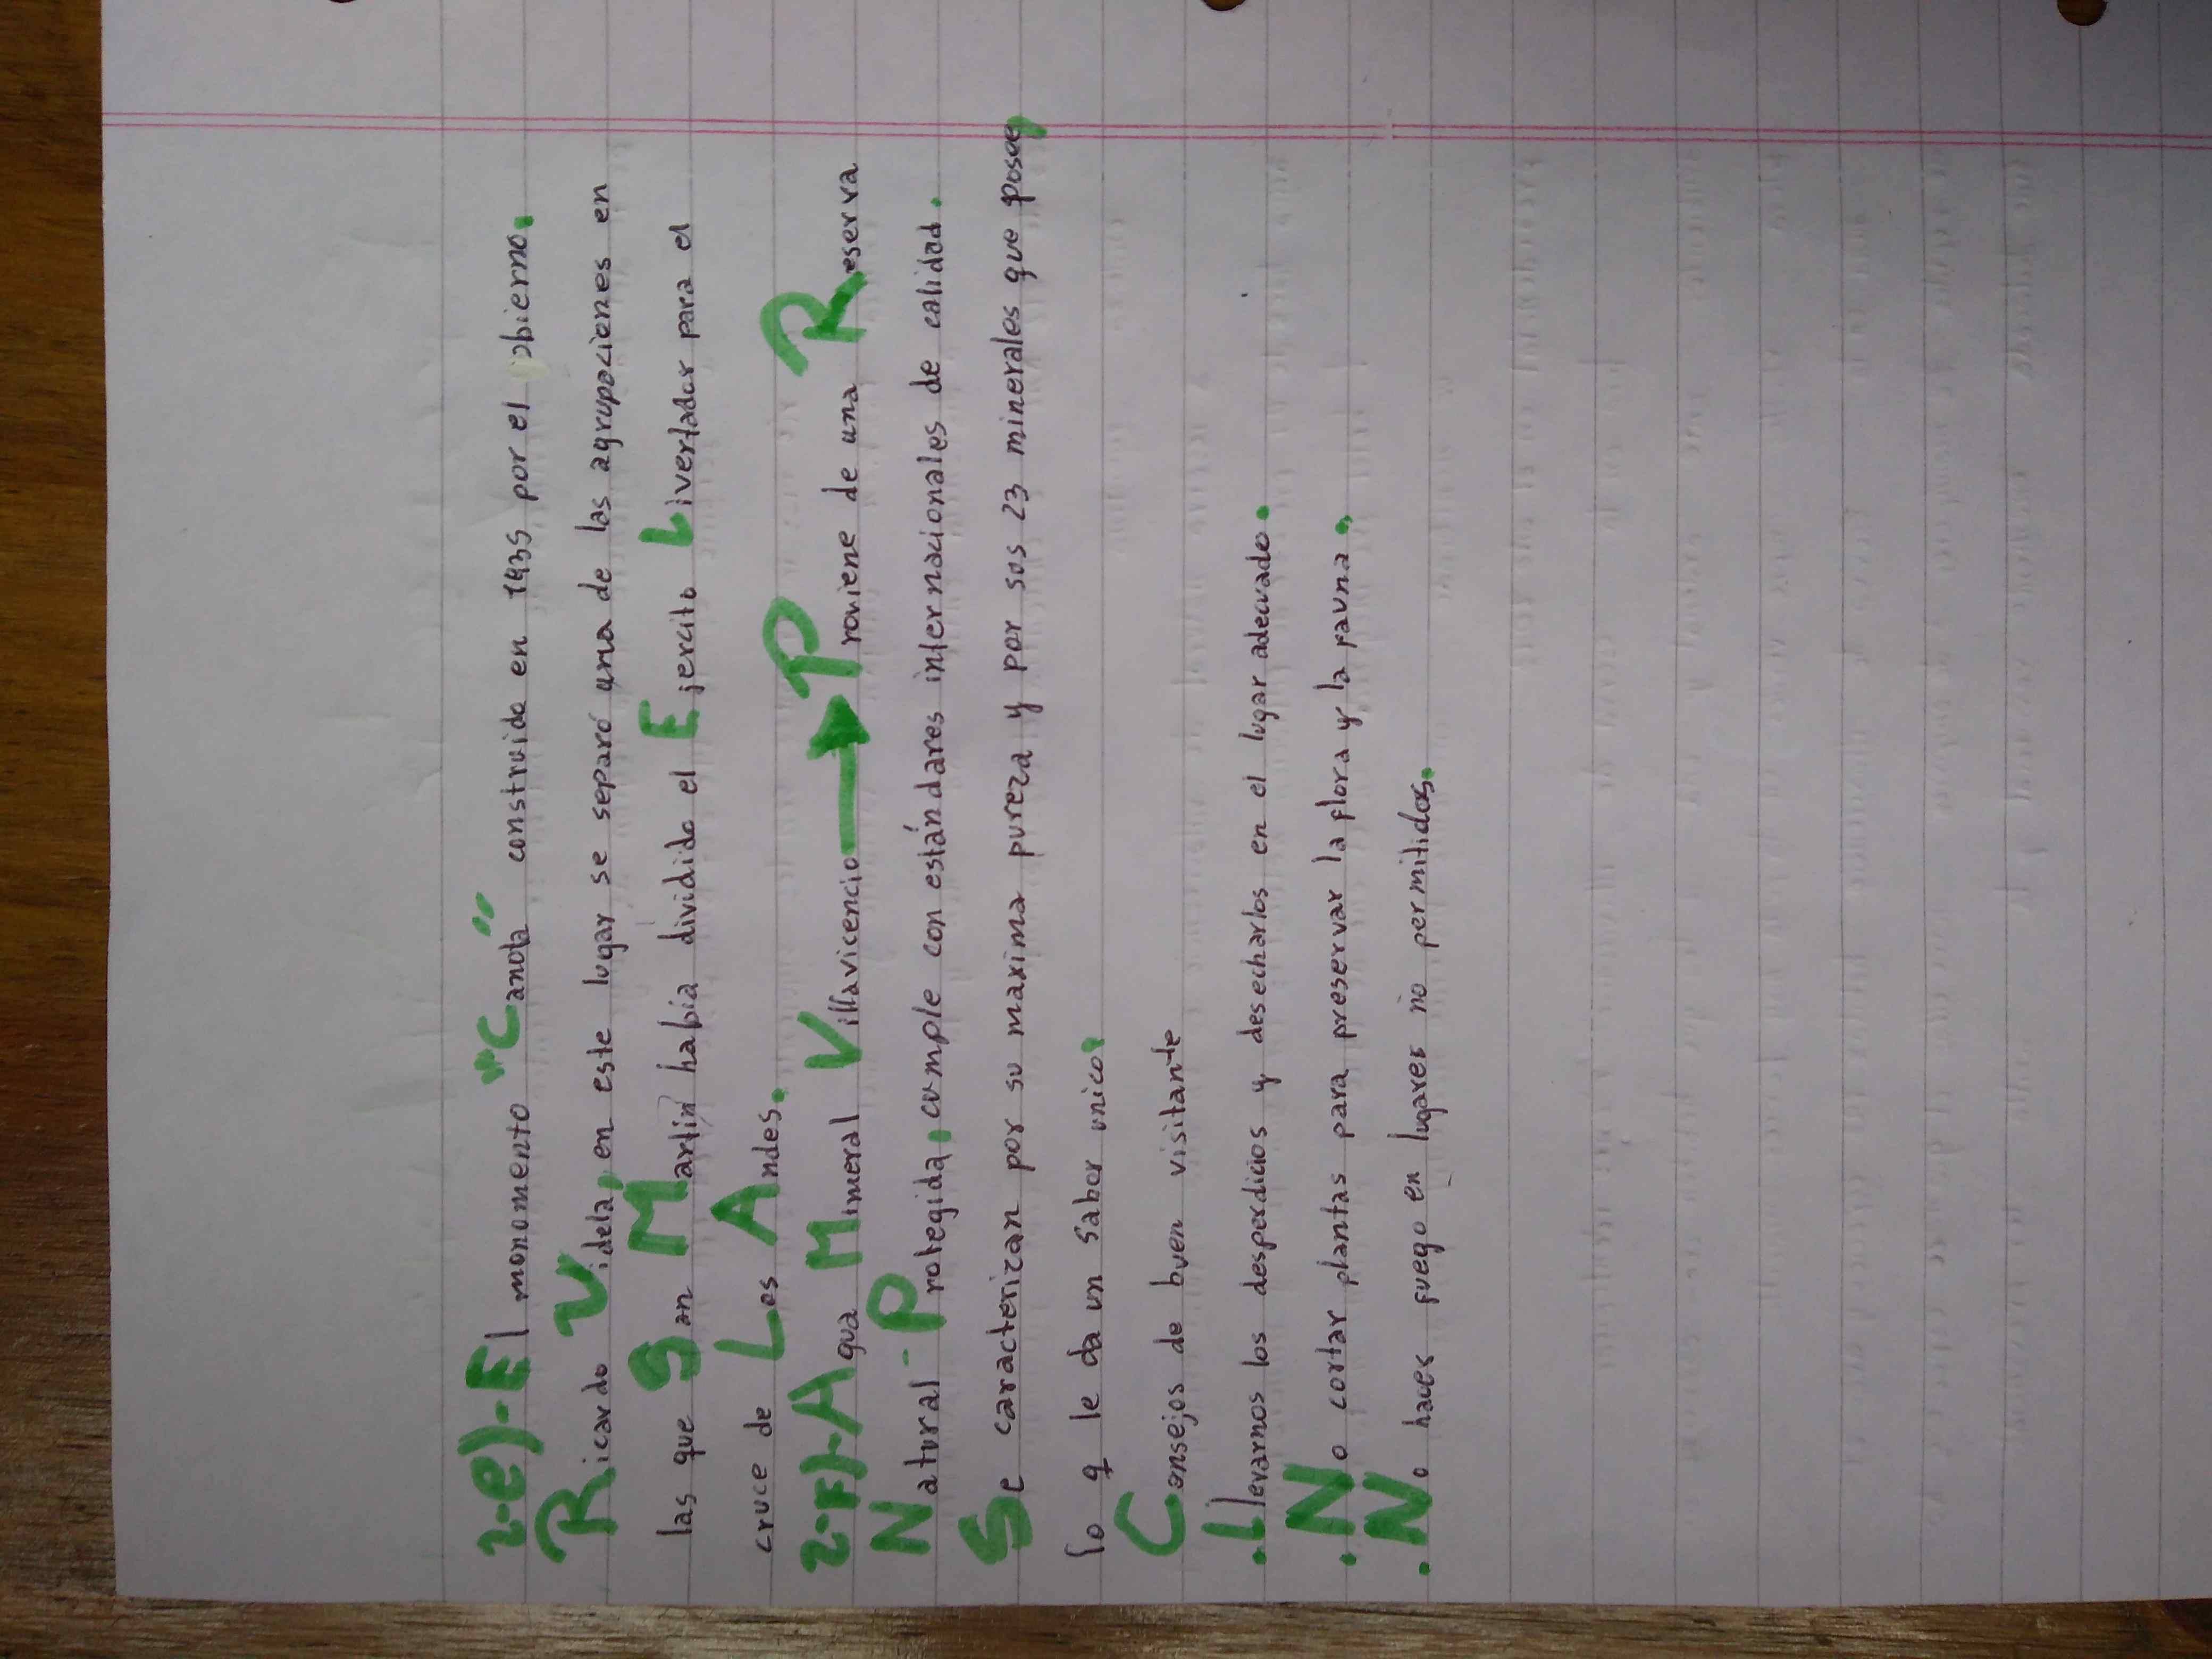 2-e)-El monomento "Canota" construido en 1935 por el obierno.
Ricardo Videla, en este lugar se separó una de las agrupaciones en
las que San Martin habia dividido el Ejercito Livertador para el
cruce de Los Andes.
2-F)-Agua Mineral Villavicencio → Proviene de una Reserva
Natural-Protegida, cumple con estándares internacionales de calidad.
Se caracterizan por su maxima pureza y por sus 23 minerales que posee,
lo q le da un sabor unico.
Consejos de buen visitante
.Llevarnos los desperdicios y desecharlos en el lugar adecuado.
.No cortar plantas para preservar la flora y la fauna.
.No hacer fuego en lugares no permitidos.